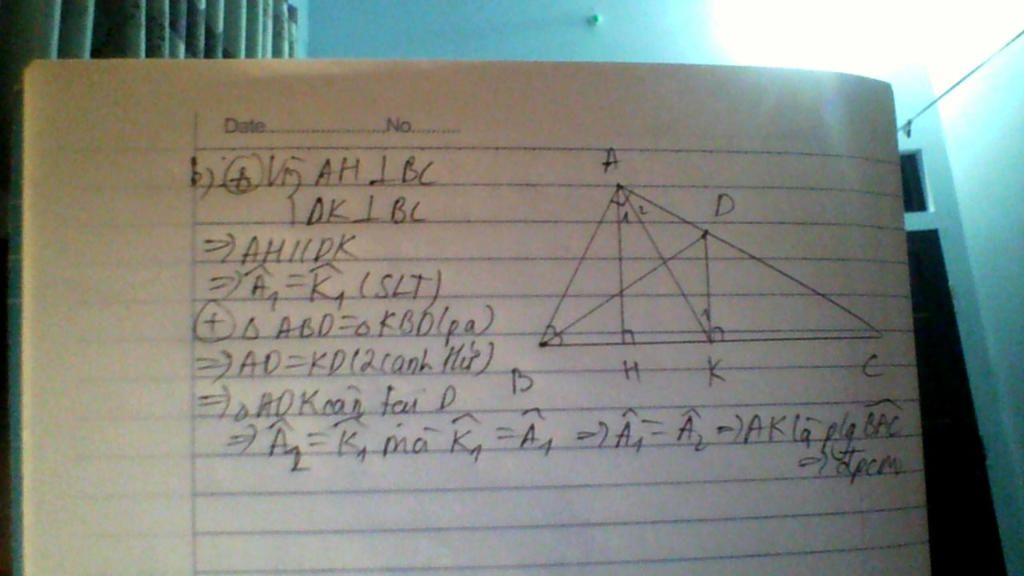 Date............No.......
b) + Vì AH ⊥ BC
DK ⊥ BC
⇒ AH // DK
⇒ Â₁ = K̂₁ (SLT)
+ Δ ABD = Δ KBD (pa)
⇒ AD = KD (2 cạnh t/ứ)
⇒ Δ ADK cân tại D
⇒ Â₂ = K̂₁ mà K̂₁ = Â₁ ⇒ Â₁ = Â₂ ⇒ AK là p/g BAC
⇒ đpcm
A
1 2
D
1
B H K C